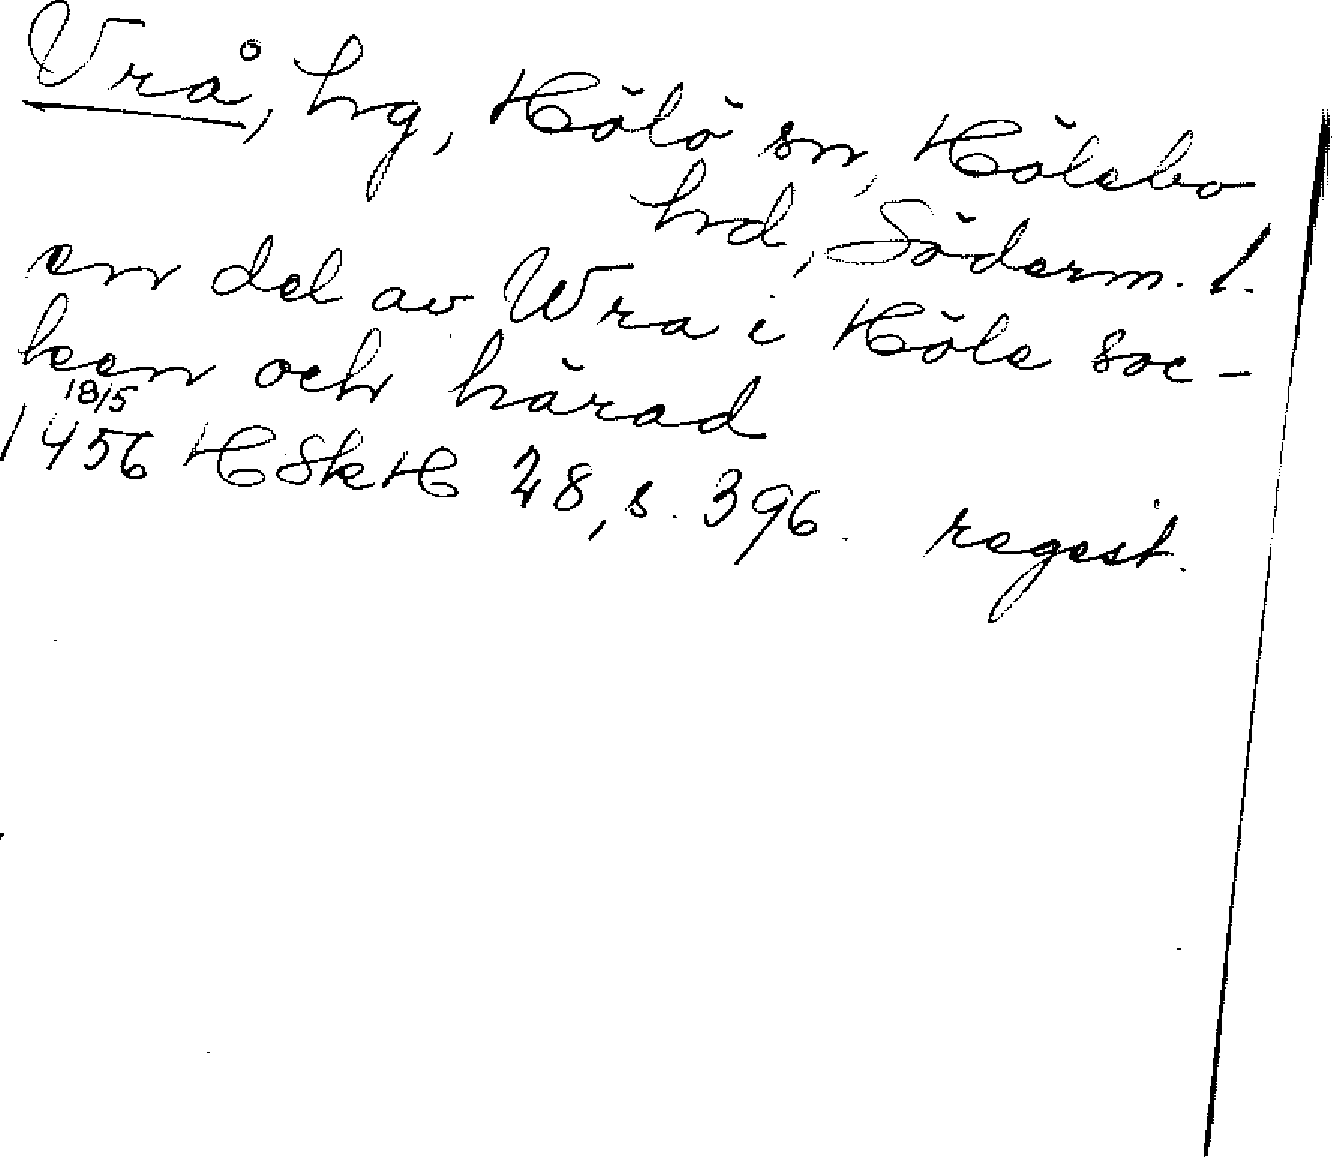 Vrå, hg, Hölö sn, Hölebo
hrd, Söderm. l.
en del av Wra i Höle soc-
ken och härad
18/5
1456 HSkH 28, s. 396. regest.